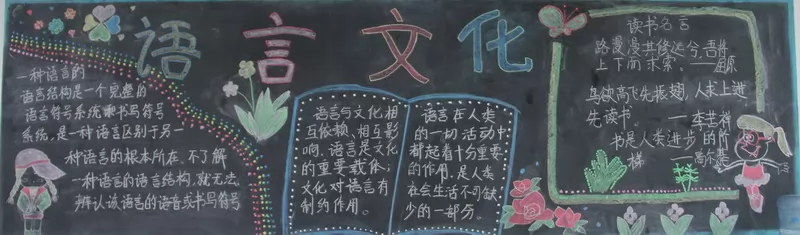 语言文化
一种语言的
语言结构是一个完整的
语言符号系统和书写符号
系统,是一种语言区别于另一
种语言的根本所在,不了解
一种语言的语言结构,就无法
辨认该语言的语音或书写符号
语言与文化相
互依赖、相互影
响,语言是文化
的重要载体;
文化对语言有
制约作用。
语言在人类
的一切活动中
都起着十分重要
的作用,是人类
社会生活不可缺
少的一部分。
读书名言
路漫漫其修远兮,吾将
上下而求索。——屈原
鸟欲高飞先振翅,人求上进
先读书。——李苦禅
书是人类进步的阶
梯——高尔基